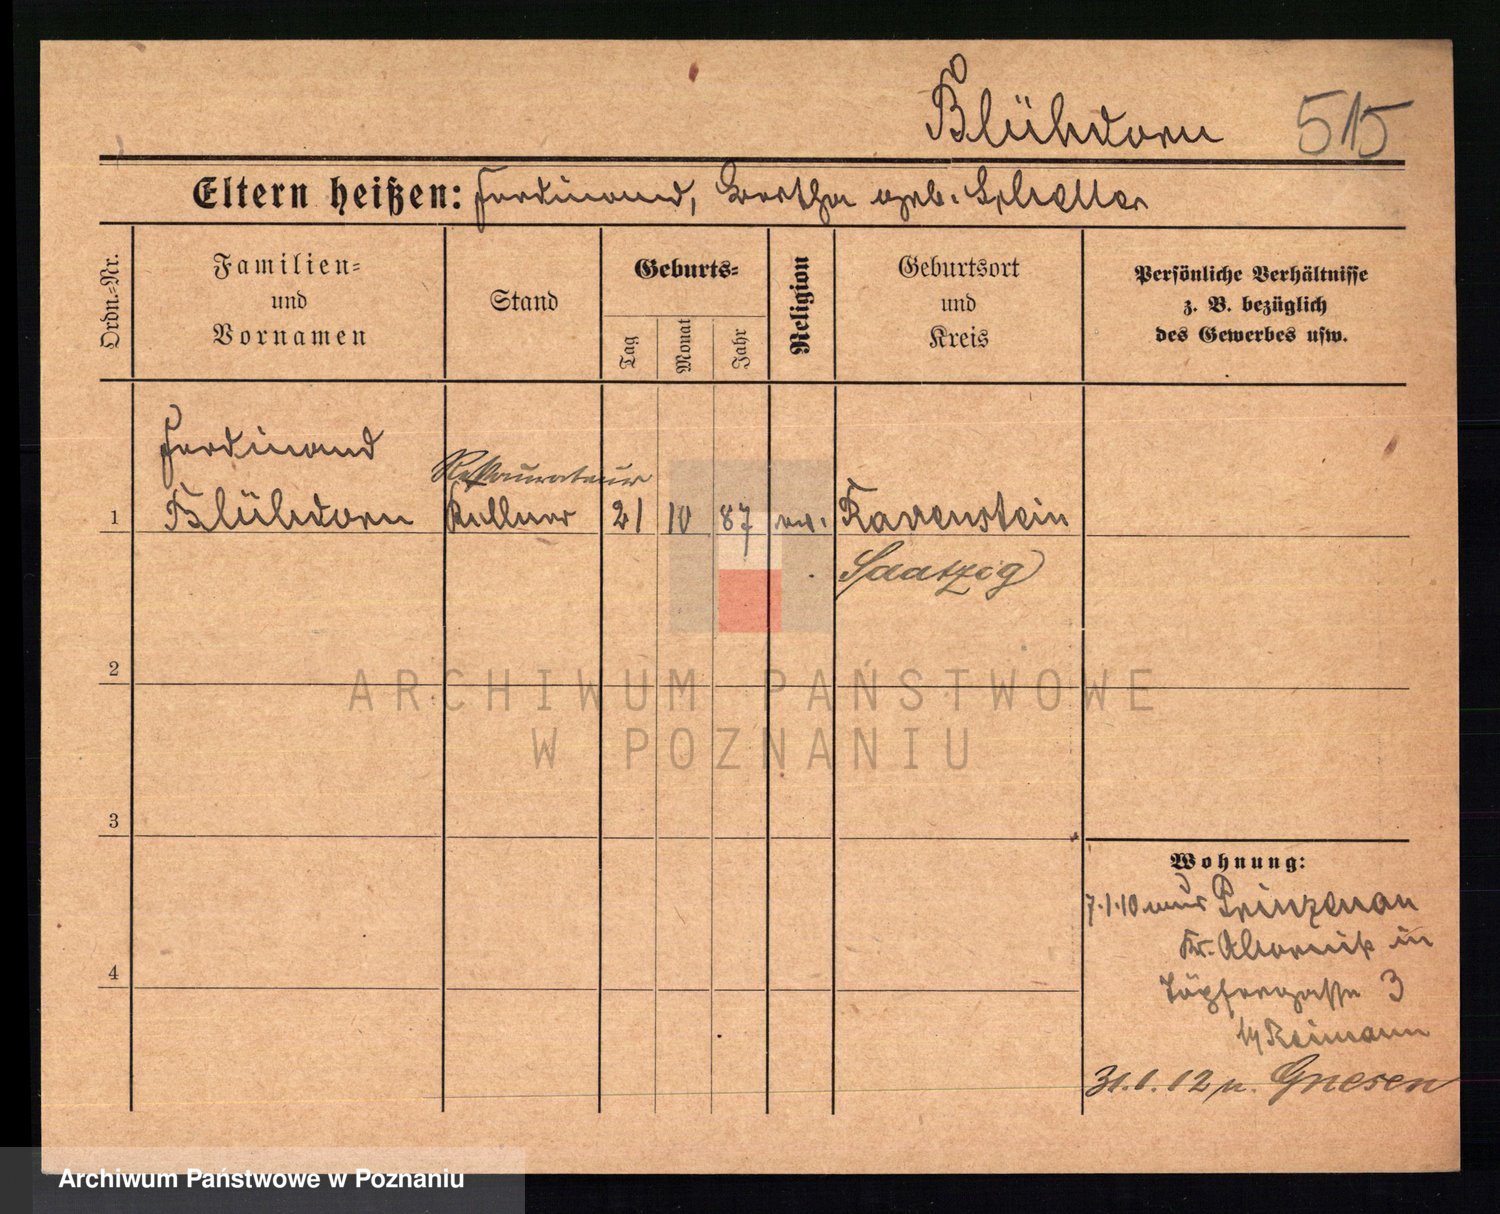 Blühdorn 515
Eltern heißen: Ferdinand, Bertha geb. Scheller
Ordn.-Nr.
Familien-
und
Vornamen
Stand
Geburts-
Tag
Monat
Jahr
Religion
Geburtsort
und
Kreis
Persönliche Verhältnisse
z. B. bezüglich
des Gewerbes usw.
Ferdinand
Restaurateur
1 Blühdorn Kellner 21 10 87 ev. Ravenstein
Saatzig
2
3
4
Wohnung:
7.1.10 aus Prinzenau
Kr. Obornik in
Töpfergasse 3
b/ Reimann
31.1.12 n. Gnesen
ARCHIWUM PAŃSTWOWE
W POZNANIU
Archiwum Państwowe w Poznaniu